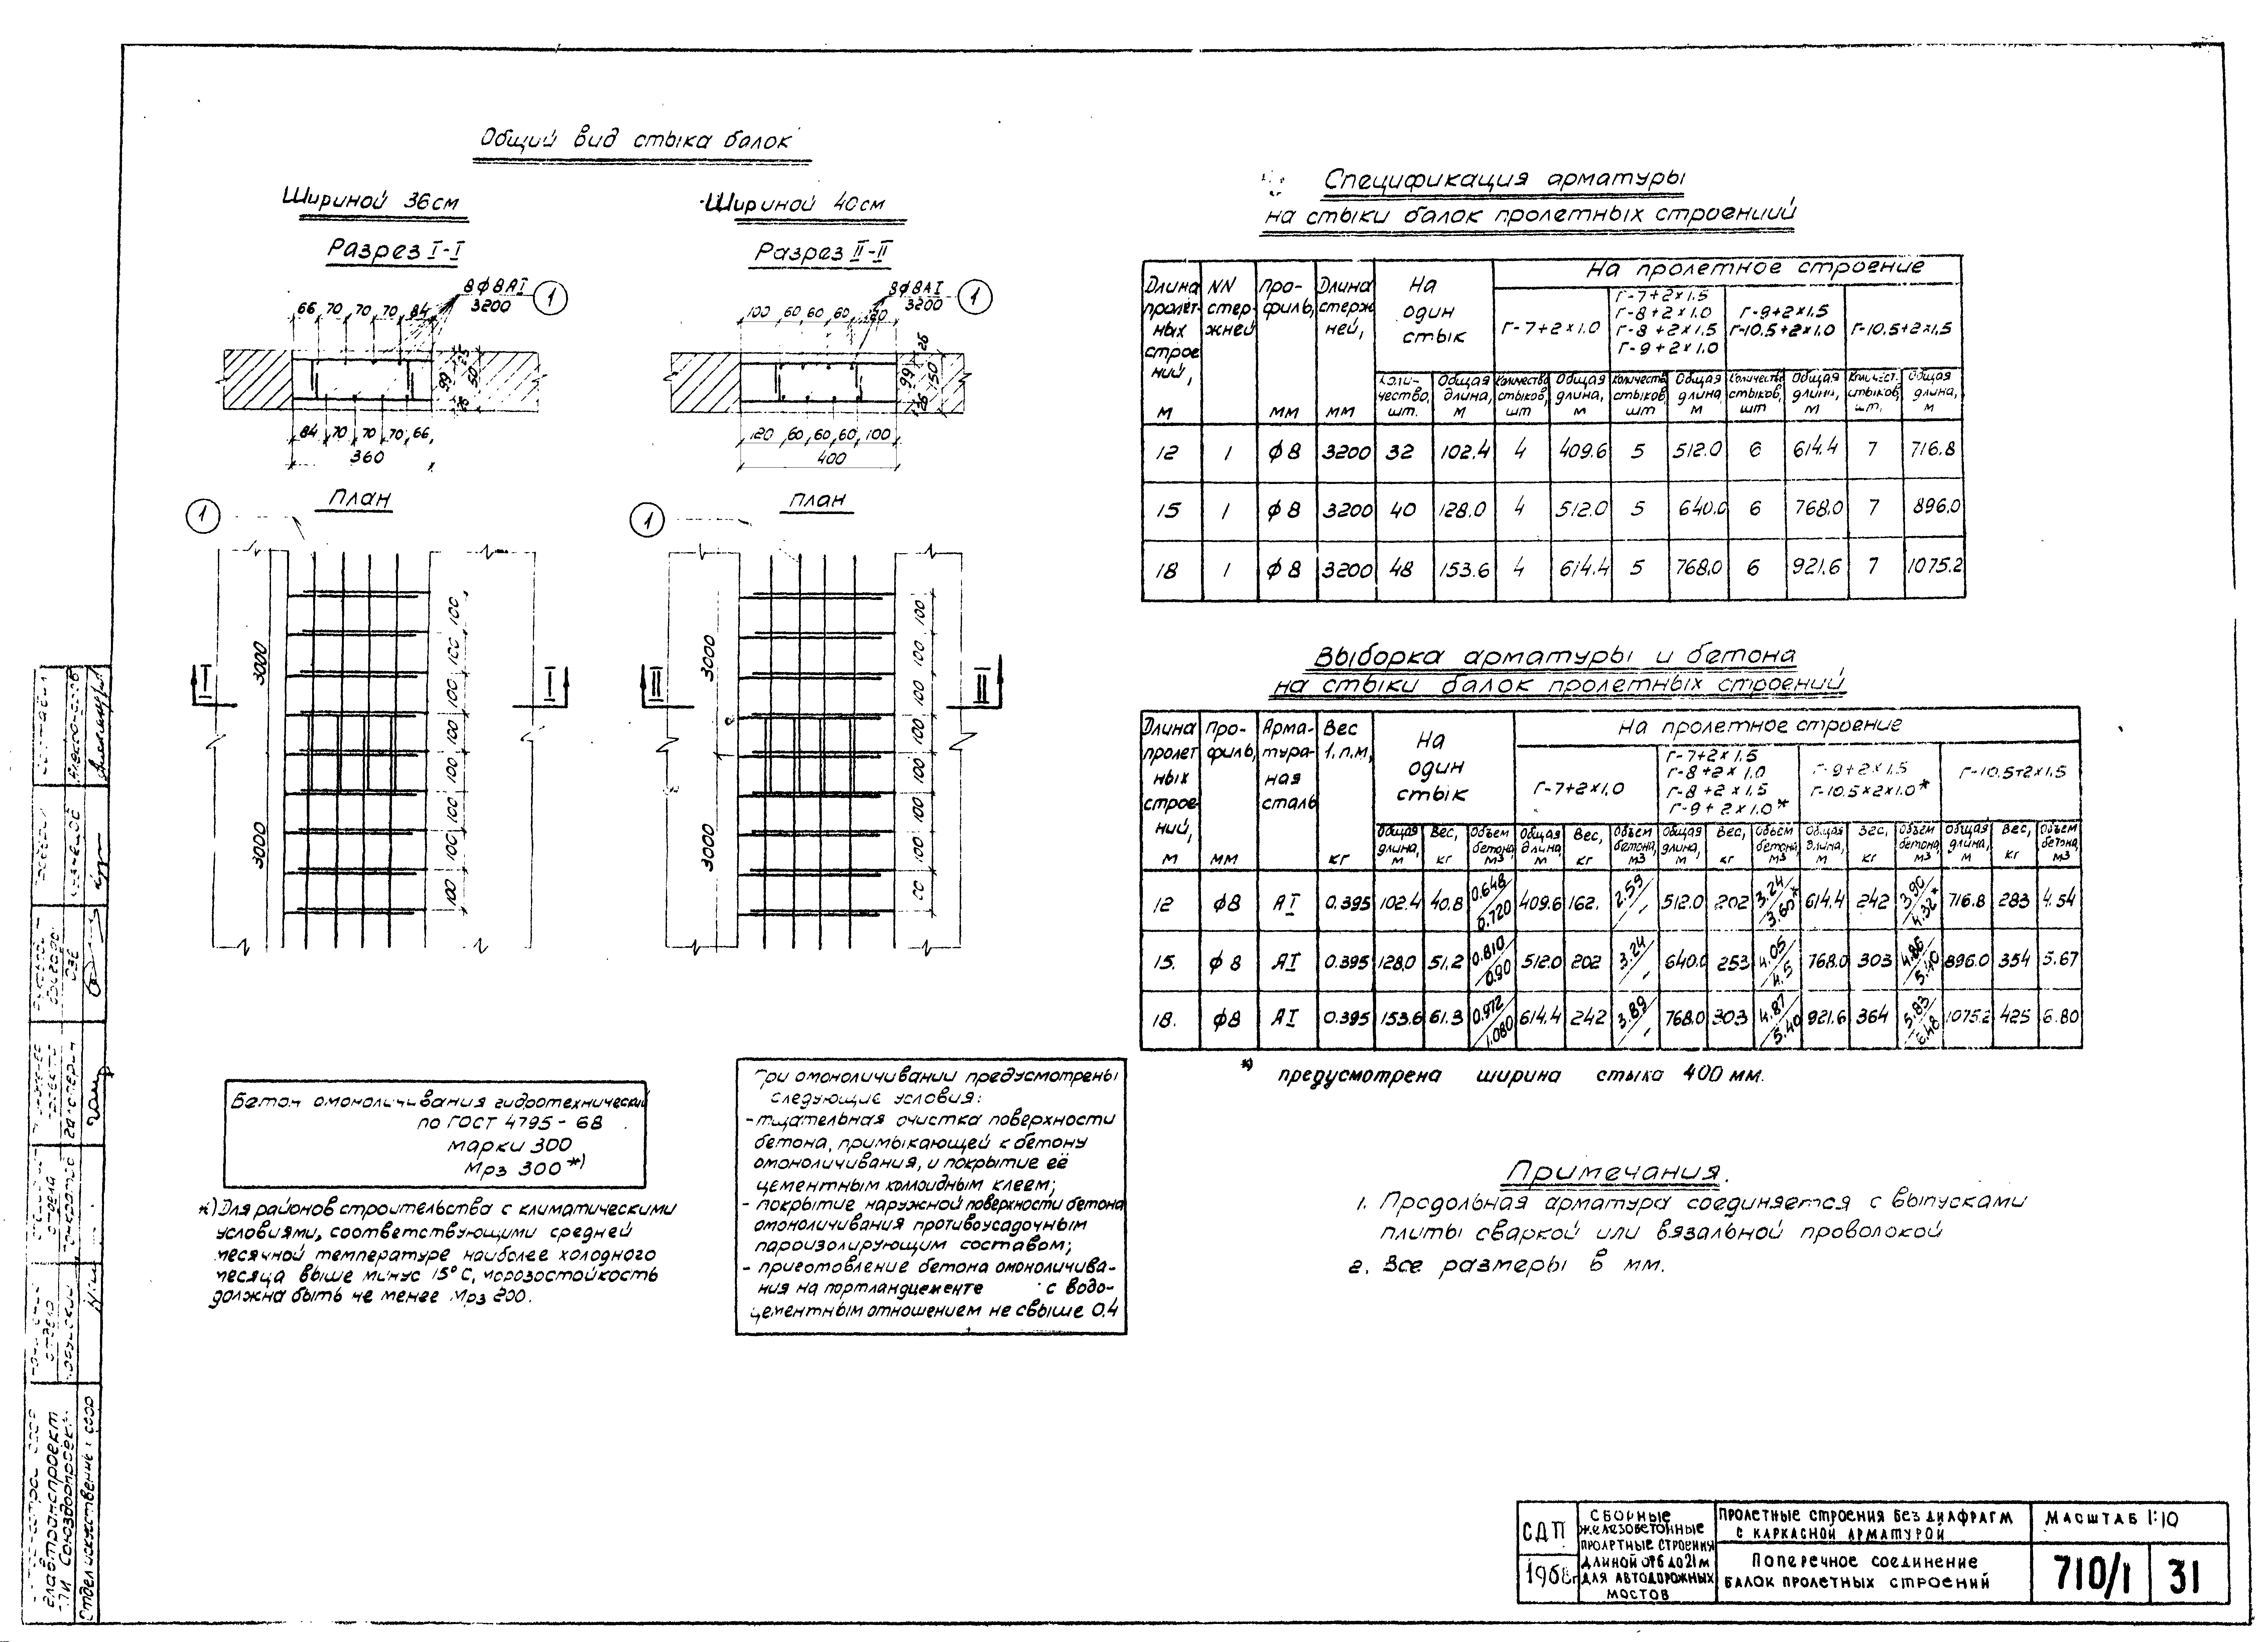 Общий вид стыка балок
Шириной 36см
Разрез I-I
8ф8АI
3200
1
66 70 70 70 84
26
99
50
26
84 70 70 70 66
360
План
1
3000
3000
I I
100 100 100 100 100 100 100 100
Шириной 40см
Разрез II-II
8ф8АI
3200
1
100 60 60 60 120
26
99
150
26
120 60 60 60 100
400
план
1
3000
3000
II II
100 100 100 100 100 100
Бетон омоноличивания гидротехнический
по ГОСТ 4795-68
марки 300
Мрз 300*)
*) Для районов строительства с климатическими
условиями, соответствующими средней
месячной температуре наиболее холодного
месяца выше минус 15°С, морозостойкость
должна быть не менее Мрз 200.
При омоноличивании предусмотрены
следующие условия:
- тщательная очистка поверхности
бетона, примыкающей к бетону
омоноличивания, и покрытие её
цементным коллоидным клеем;
- покрытие наружной поверхности бетона
омоноличивания противоусадочным
пароизолирующим составом;
- приготовление бетона омоноличива-
ния на портландцементе с водо-
цементным отношением не свыше 0.4
Спецификация арматуры
на стыки балок пролетных строений
Длина пролет-ных строе ний, м | NN стер-жней | Про-филь, мм | Длина стерж ней, мм | На один стык | На пролетное строение
Г-7+2×1.0 | Г-7+2×1.5 Г-8+2×1.0 Г-8+2×1.5 Г-9+2×1.0 | Г-9+2×1.5 Г-10.5+2×1.0 | Г-10.5+2×1,5
Коли-чество, шт. | Общая длина, м | Количество стыков, шт | Общая длина, м | Количество стыков, шт | Общая длина, м | Количество стыков, шт | Общая длина, м | Количест. стыков, шт. | Общая длина, м
12 1 ф8 3200 32 102.4 4 409.6 5 512.0 6 614.4 7 716.8
15 1 ф8 3200 40 128.0 4 512.0 5 640.0 6 768.0 7 896.0
18 1 ф8 3200 48 153.6 4 614.4 5 768.0 6 921.6 7 1075.2
Выборка арматуры и бетона
на стыки балок пролетных строений
Длина пролет ных строе ний, м | Про-филь, мм | Арма-тура-ная сталь | Вес 1.п.м, кг | На один стык | На пролетное строение
Г-7+2×1,0 | Г-7+2×1.5 Г-8+2×1.0 Г-8+2×1.5 Г-9+2×1.0* | Г-9+2×1.5 Г-10.5×2×1.0* | Г-10.5+2×1.5
Общая длина, м | Вес, кг | Объем бетона, м3 | Общая длина, м | Вес, кг | Объем бетона, м3 | Общая длина, м | Вес, кг | Объем бетона, м3 | Общая длина, м | Вес, кг | Объем бетона, м3 | Общая длина, м | Вес, кг | Объем бетона, м3
12 ф8 АI 0.395 102.4 40.8 0.648/0.720 409.6 162. 2.59/- 512.0 202 3.24/3.60* 614.4 242 3.90/4.32* 716.8 283 4.54
15. ф8 АI 0.395 128.0 51,2 0.810/0.90 512.0 202 3.24/- 640.0 253 4.05/4.5 768.0 303 4.86/5.40 896.0 354 5.67
18. ф8 АI 0.395 153.6 61.3 0.972/1.080 614.4 242 3.89/- 768.0 303 4.87/5.40 921.6 364 5.83/6.48 1075.2 425 6.80
*) предусмотрена ширина стыка 400 мм.
Примечания.
1. Продольная арматура соединяется с выпусками
плиты сваркой или вязальной проволокой
2. Все размеры в мм.
СДП
1968г
СБОРНЫЕ
ЖЕЛЕЗОБЕТОННЫЕ
ПРОЛЕТНЫЕ СТРОЕНИЯ
ДЛИНОЙ ОТ 6 ДО 21м
ДЛЯ АВТОДОРОЖНЫХ
МОСТОВ
ПРОЛЕТНЫЕ СТРОЕНИЯ БЕЗ ДИАФРАГМ
С КАРКАСНОЙ АРМАТУРОЙ
ПОПЕРЕЧНОЕ СОЕДИНЕНИЕ
БАЛОК ПРОЛЕТНЫХ СТРОЕНИЙ
МАСШТАБ 1:10
710/1 31
Главтранспроект
Союздорпроект